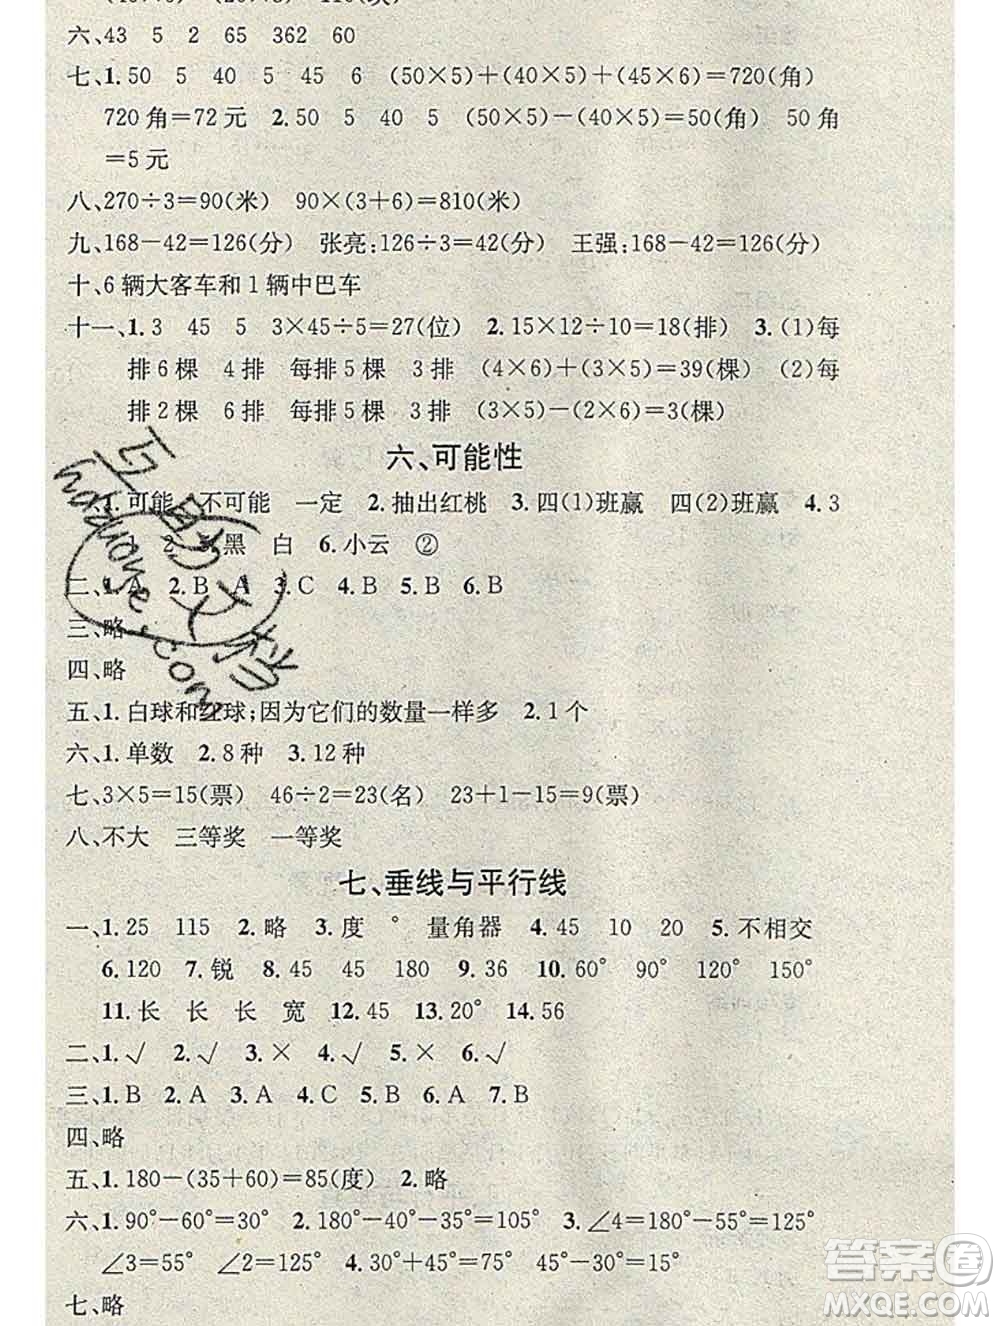 六、43 5 2 65 362 60
七、1.50 5 40 5 45 6 (50×5)+(40×5)+(45×6)=720(角)
720角=72元 2.50 5 40 5 (50×5)-(40×5)=50(角) 50角
=5元
八、270÷3=90(米) 90×(3+6)=810(米)
九、168-42=126(分) 张亮:126÷3=42(分) 王强:168-42=126(分)
十、6辆大客车和1辆中巴车
十一、1.3 45 5 3×45÷5=27(位) 2.15×12÷10=18(排) 3.(1)每
排6棵 4排 每排5棵 3排 (4×6)+(3×5)=39(棵) (2)每
排2棵 6排 每排5棵 3排 (3×5)-(2×6)=3(棵)
六、可能性
1.可能 不可能 一定 2.抽出红桃 3.四(1)班赢 四(2)班赢 4.3
2 黑 白 6.小云 ②
二、1.A 2.B A 3.C 4.B 5.B 6.B
三、略
四、略
五、1.白球和红球;因为它们的数量一样多 2.1个
六、1.单数 2.8种 3.12种
七、3×5=15(票) 46÷2=23(名) 23+1-15=9(票)
八、不大 三等奖 一等奖
七、垂线与平行线
一、1.25 115 2.略 3.度 ° 量角器 4.45 10 20 5.不相交
6.120 7.锐 8.45 45 180 9.36 10.60° 90° 120° 150°
11.长 长 长 宽 12.45 13.20° 14.56
二、1.√ 2.√ 3.× 4.√ 5.× 6.√
三、1.B 2.A 3.A 4.C 5.B 6.A 7.B
四、略
五、1.180-(35+60)=85(度) 2.略
六、1.90°-60°=30° 2.180°-40°-35°=105° 3.∠4=180°-55°=125°
∠3=55° ∠2=125° 4.30°+45°=75° 45°-30°=15°
七、略
互助文档
hdzuoye.com
答案圈
MXQE.COM